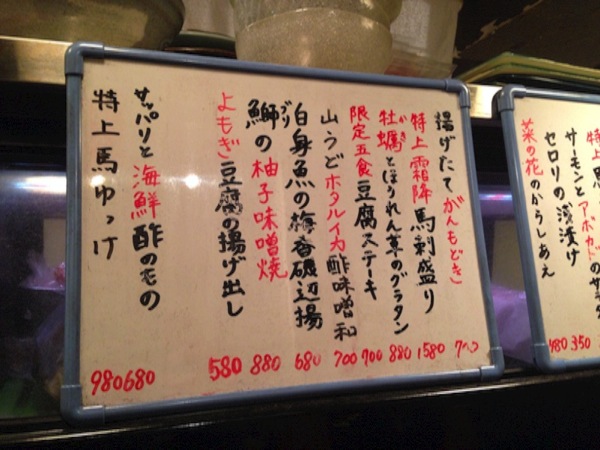 揚げたてがんもどき
特上霜降馬刺盛り 1580
牡蠣とほうれん草のグラタン 880
かき
限定五食豆腐ステーキ 700
山うどホタルイカ酢味噌和 700
白身魚の梅香磯辺揚 680
鰤の柚子味噌焼 880
ブリ
よもぎ豆腐の揚げ出し 580
サッパリと海鮮酢のもの 680
特上馬ゆっけ 980
特上
サーモンとアボカドのサラダ
セロリの浅漬け 350
菜の花のからしあえ 480